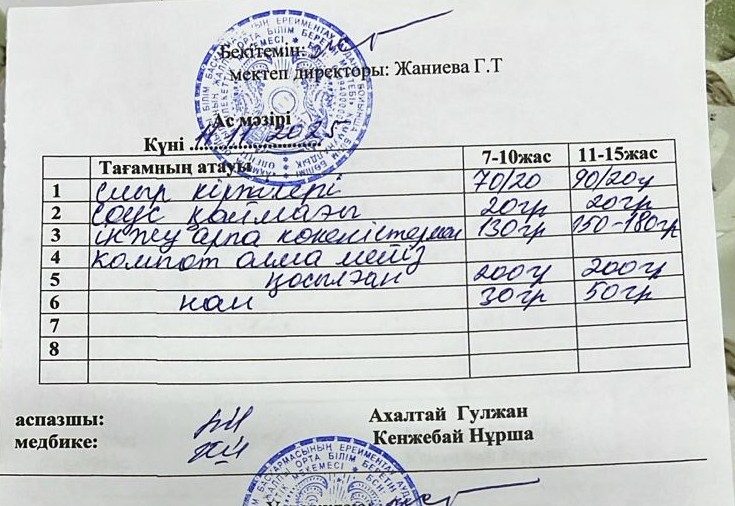 Бекітемін:
мектеп директоры: Жаниева Г.Т
Ас мәзірі
Күні 11.11.2025
Тағамның атауы 7-10жас 11-15жас
1 сиыр кіртілері 70/20 90/20гр
2 соус қаймағы 20гр 20гр
3 інжу арпа көкөністермен 130гр 150-180гр
4 компот алма мейіз
5 қосылған 200гр 200гр
6 нан 30гр 50гр
7
8
аспазшы: Ахалтай Гулжан
медбике: Кенжебай Нұрша